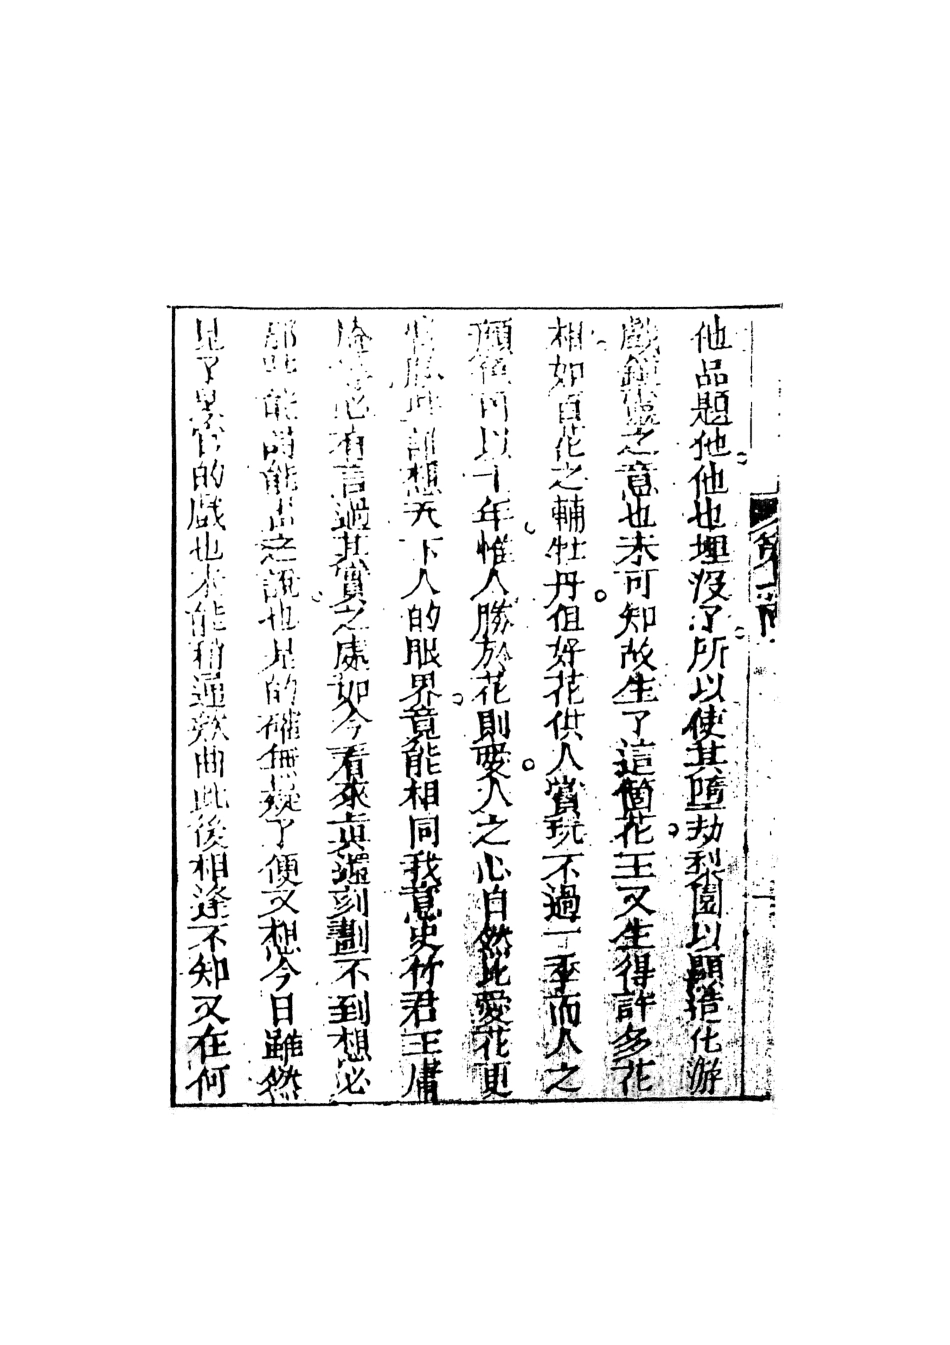 他品題他他也埋沒了所以使其墮劫梨園以顯造化游
戲鍾靈之意也未可知故生了這個花王又生得許多花
相如百花之輔牡丹但好花供人賞玩不過一季而人之
顏色可以十年惟人勝於花則愛人之心自然比愛花更
當想天下人的眼界竟能相同我意史竹君王庸
必有言過其實之處如今看來真還刻劃不到想必
能詩能畫之說也是的確無疑了便又想今日雖然
見了琴官的戲也未能稍通款曲此後相逢不知又在何